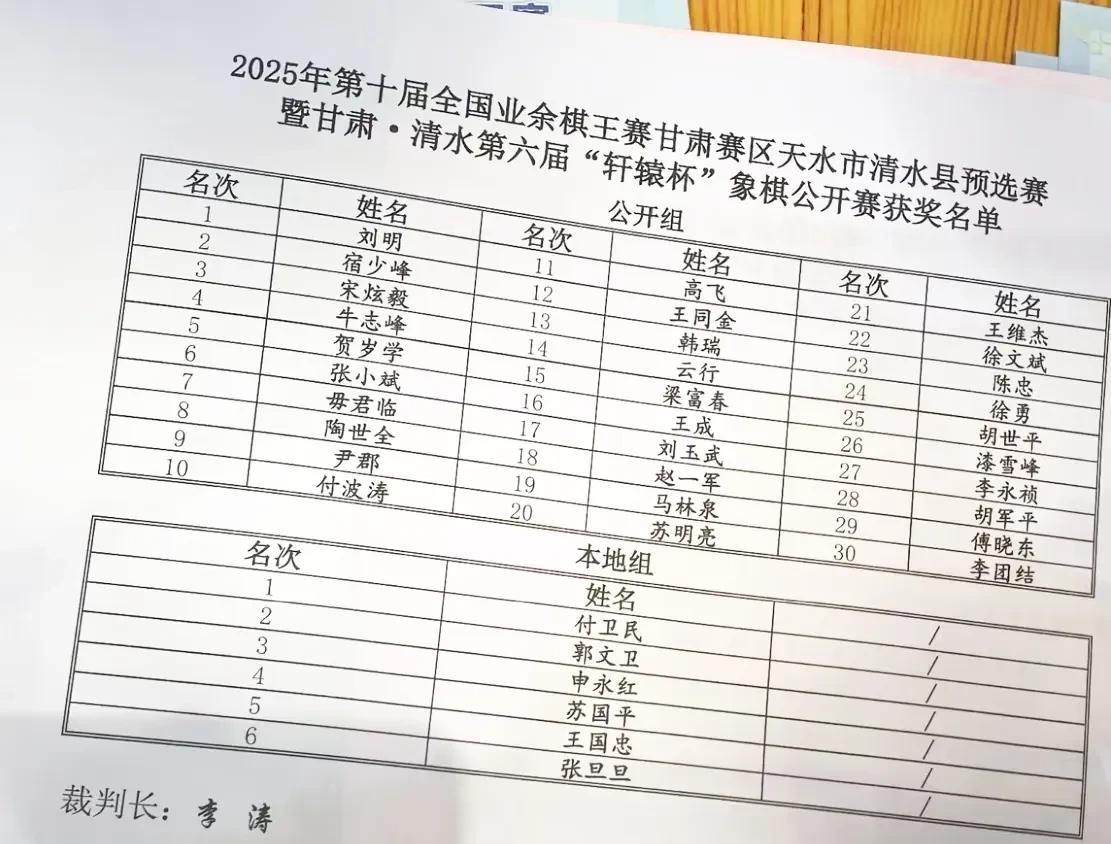 2025年第十届全国业余棋王赛甘肃赛区天水市清水县预选赛
暨甘肃·清水第六届“轩辕杯”象棋公开赛获奖名单
公开组
名次 姓名 名次 姓名 名次 姓名
1 刘明 11 高飞 21 王维杰
2 宿少峰 12 王同金 22 徐文斌
3 宋炫毅 13 韩瑞 23 陈忠
4 牛志峰 14 云行 24 徐勇
5 贺岁学 15 梁富春 25 胡世平
6 张小斌 16 王成 26 漆雪峰
7 毋君临 17 刘玉武 27 李永祯
8 陶世全 18 赵一军 28 胡军平
9 尹郡 19 马林泉 29 傅晓东
10 付波涛 20 苏明亮 30 李团结
本地组
名次 姓名 /
1 付卫民 /
2 郭文卫 /
3 申永红 /
4 苏国平 /
5 王国忠 /
6 张旦旦 /
裁判长：李 涛